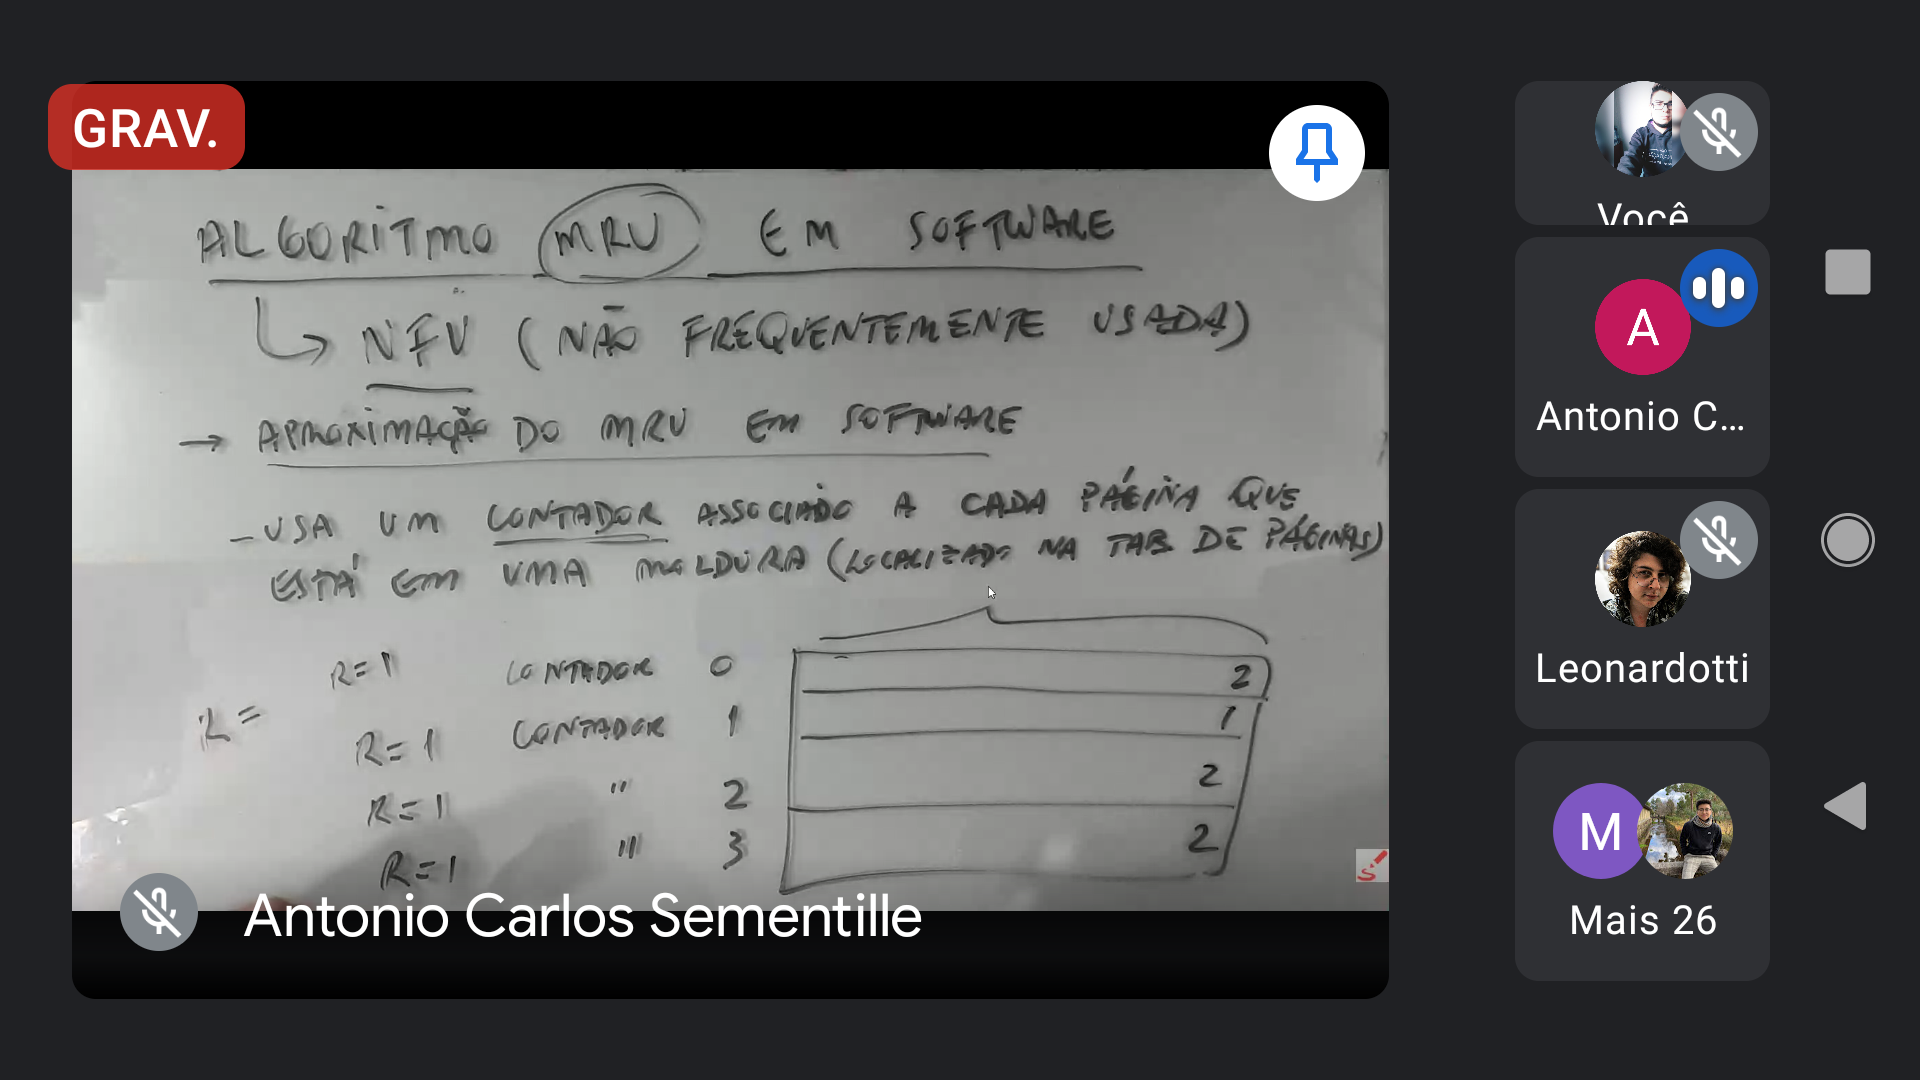 GRAV.
ALGORITMO MRU EM SOFTWARE
NFU (NÃO FREQUENTEMENTE USADA)
→ APROXIMAÇÃO DO MRU EM SOFTWARE
- USA UM CONTADOR ASSOCIADO A CADA PÁGINA QUE
ESTÁ EM UMA MOLDURA (LOCALIZADO NA TAB DE PÁGINAS)
R=1 CONTADOR 0 2
R=
R=1 CONTADOR 1 1
R=1 " 2 2
R=1 " 3 2
Antonio Carlos Sementille
Você
A
Antonio C...
Leonardotti
M
Mais 26